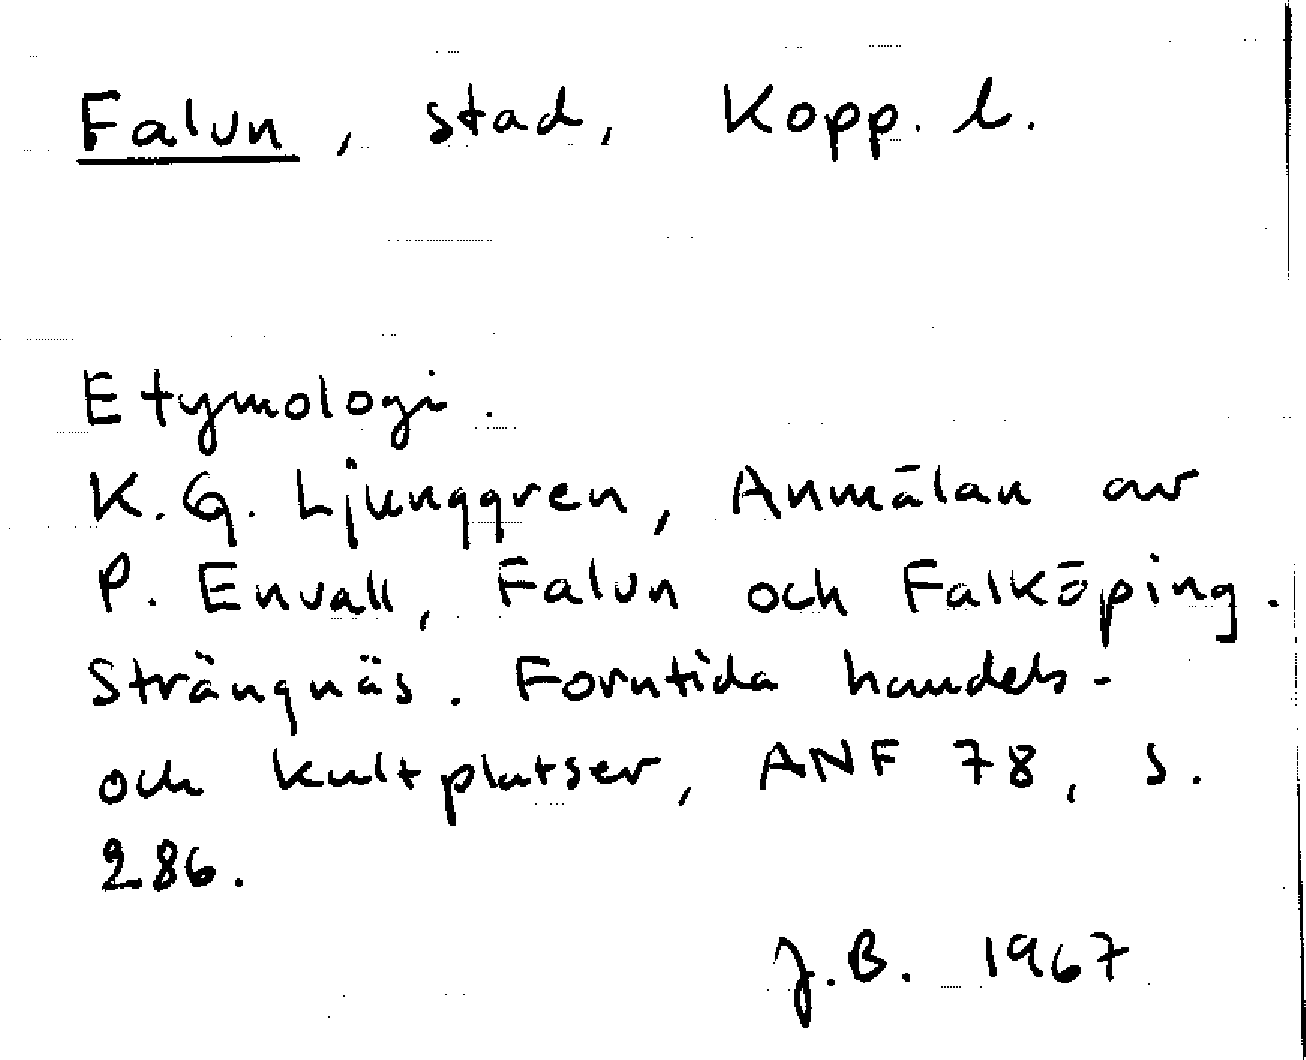 Falun, stad, Kopp. l.
Etymologi.
K.G. Ljunggren, Anmälan av
P. Envall, Falun och Falköping.
Strängnäs. Forntida handels-
och kultplatser, ANF 78, s.
286.
J.B. 1967